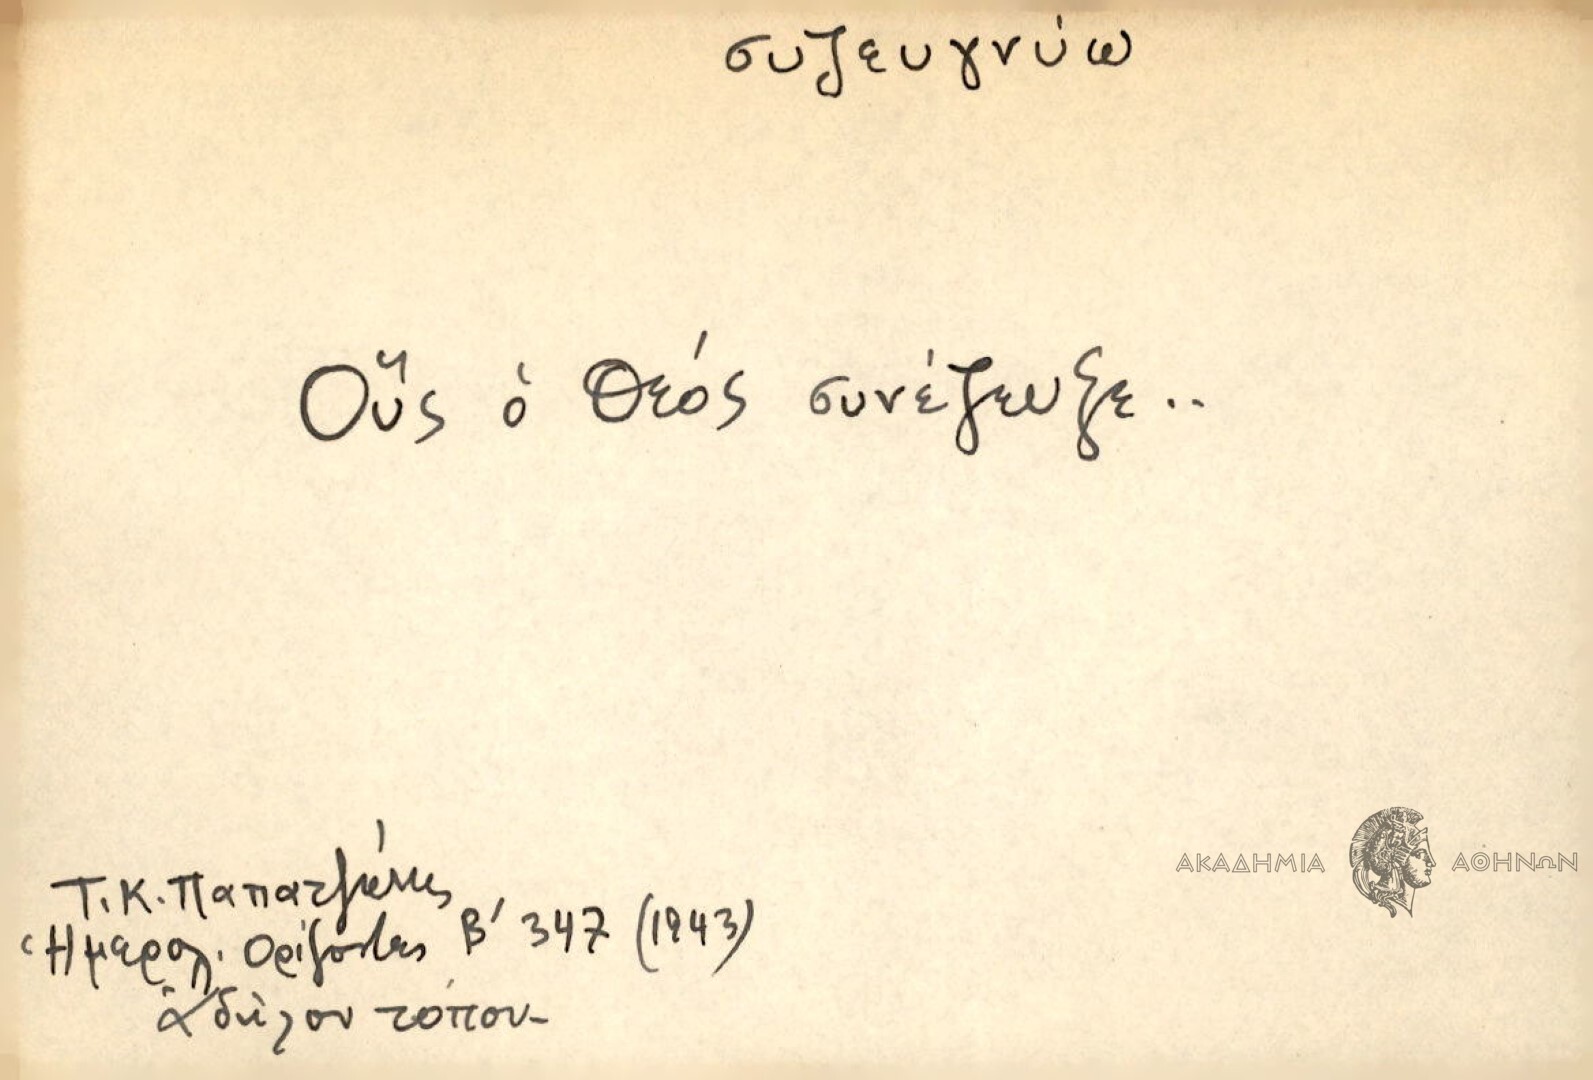 συζευγνύω
Οὓς ὁ Θεός συνέζευξε..
ΑΚΑΔΗΜΙΑ ΑΘΗΝΩΝ
Τ.Κ. Παπατζώνης
Ἡμερολ. Ορίζοντες Β' 347 (1943)
ἀδήλου τόπου-